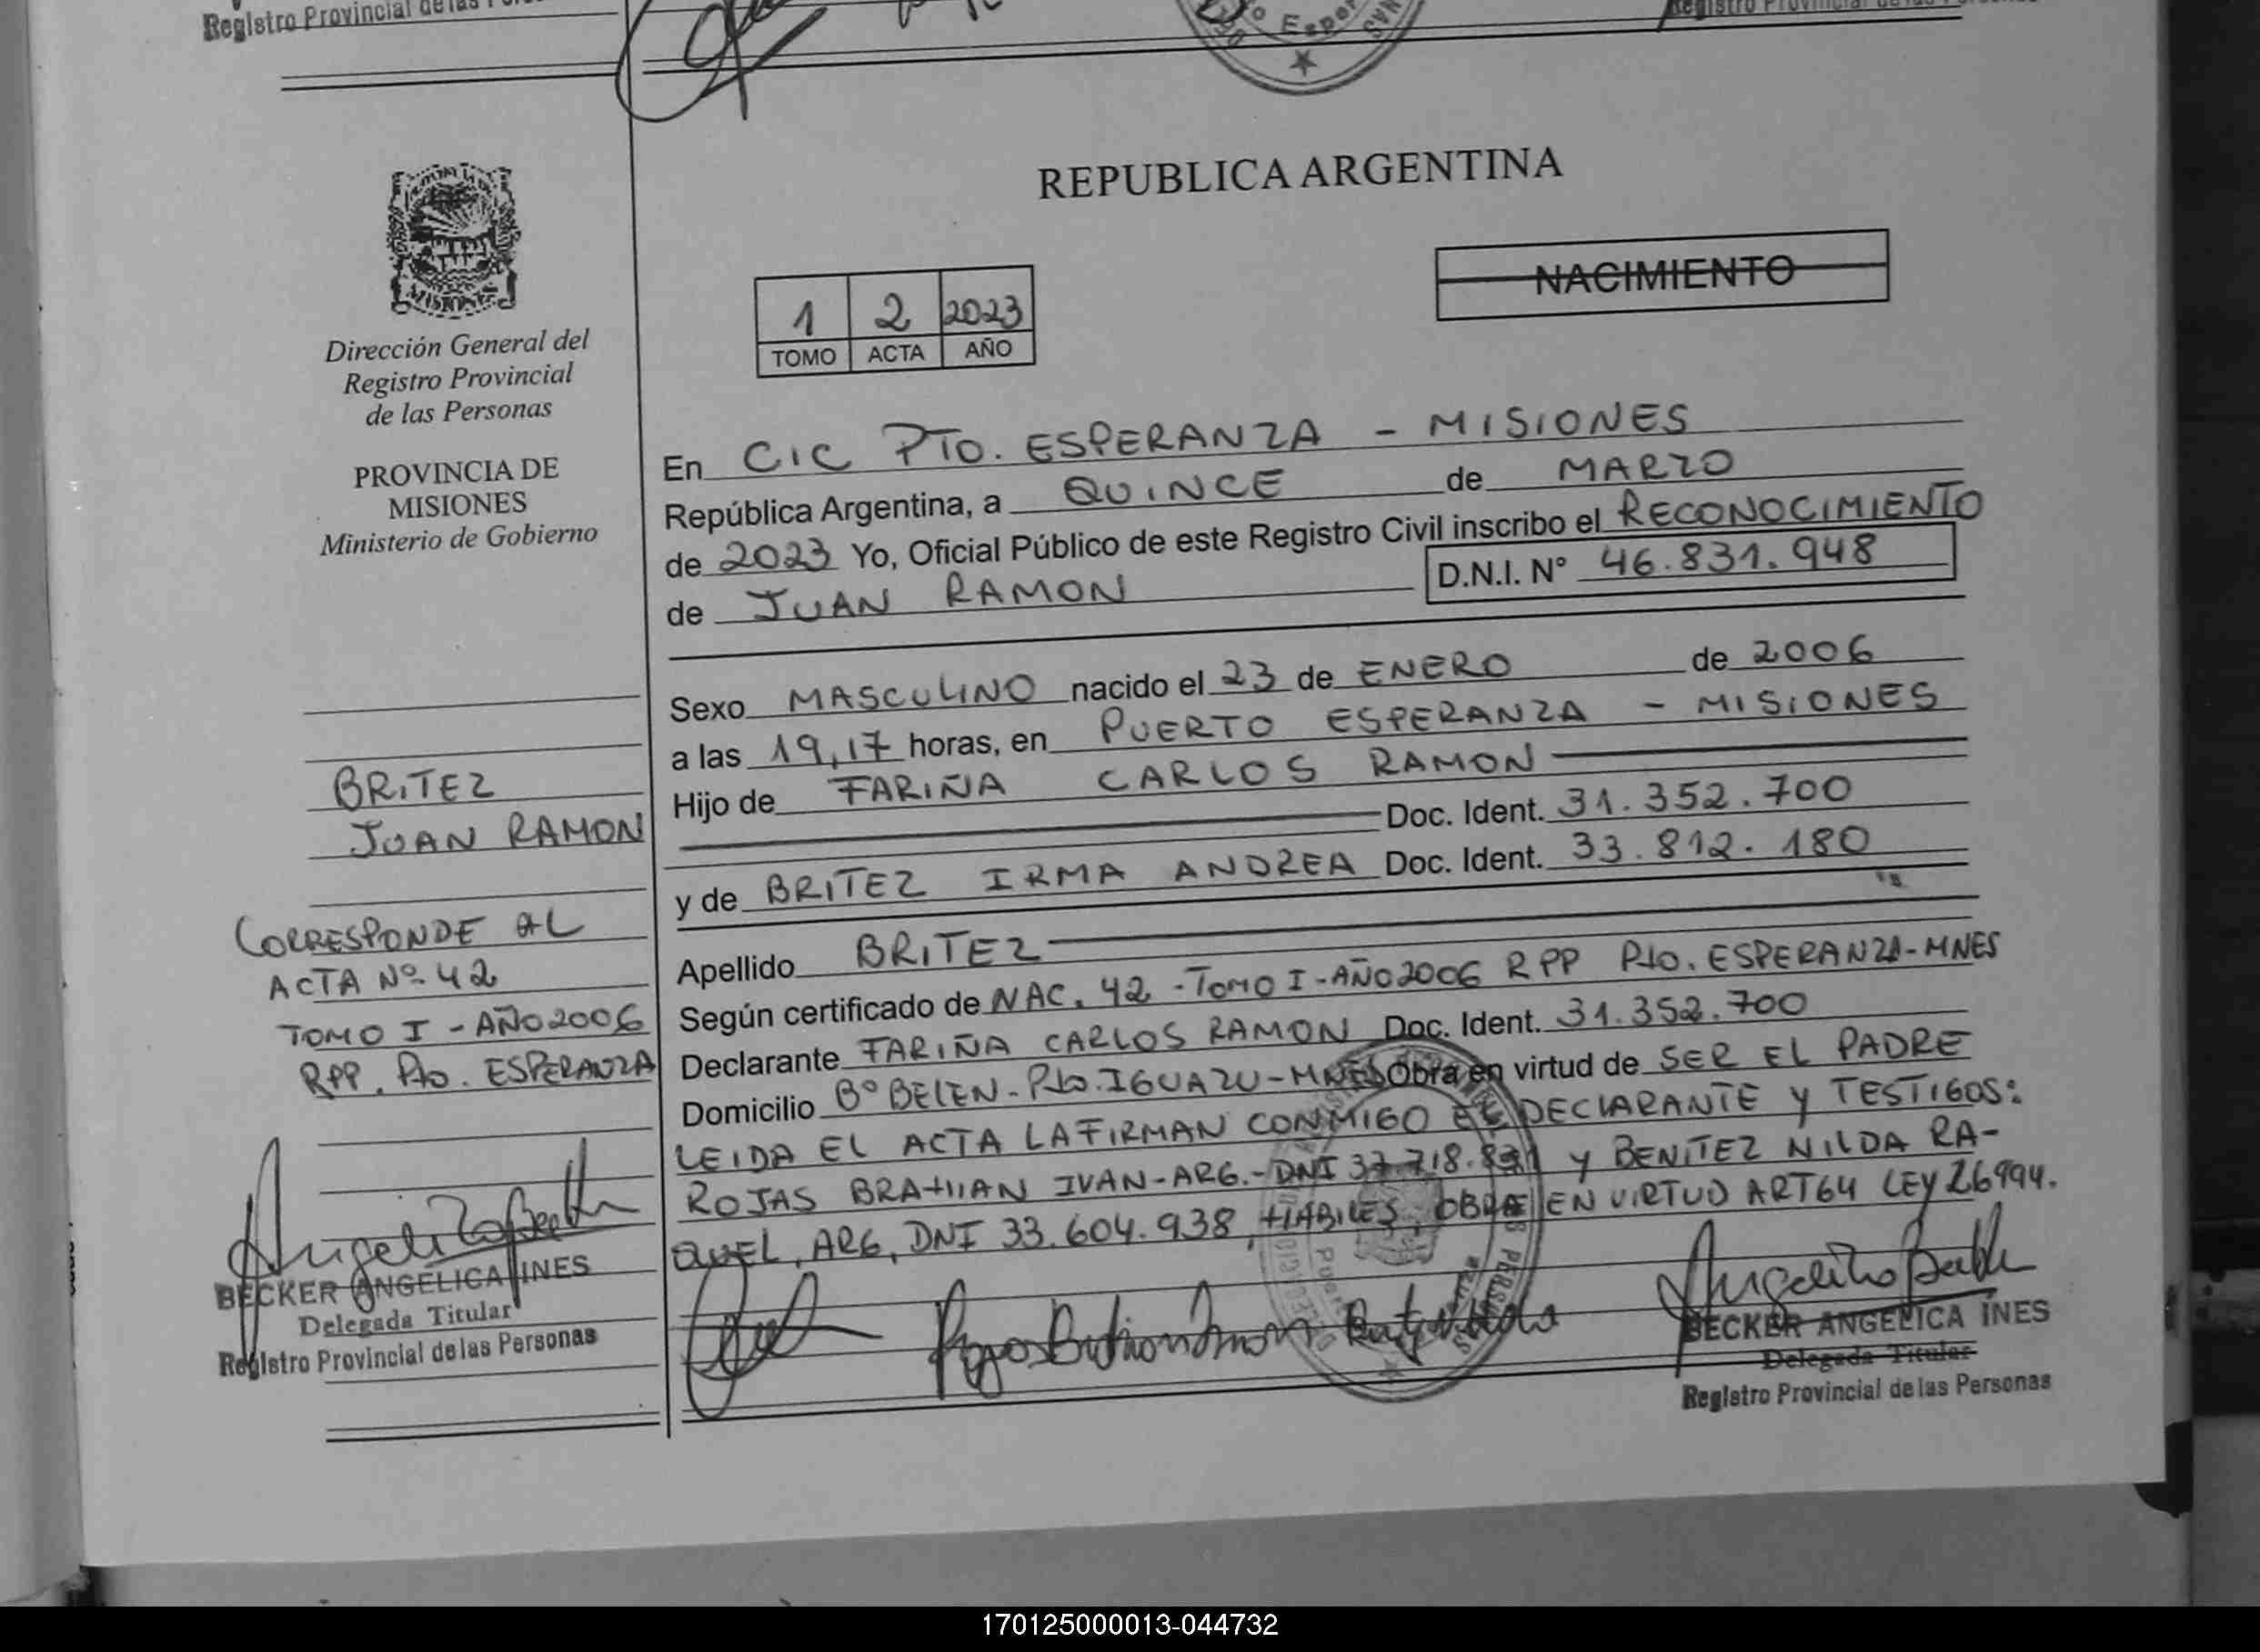 Registro Provincial de las
Registro Provincial de las Personas
REPUBLICA ARGENTINA
NACIMIENTO
1 2 2023
TOMO ACTA AÑO
MISIONES
Dirección General del
Registro Provincial
de las Personas
PROVINCIA DE
MISIONES
Ministerio de Gobierno
BRITEZ
JUAN RAMON
CORRESPONDE AL
ACTA Nº 42
TOMO I - AÑO 2006
RPP. Pto. ESPERANZA
BECKER ANGELICA INES
Delegada Titular
Registro Provincial de las Personas
En CIC PTO. ESPERANZA - MISIONES
República Argentina, a QUINCE de MARZO
de 2023 Yo, Oficial Público de este Registro Civil inscribo el RECONOCIMIENTO
de JUAN RAMON D.N.I. Nº 46.831.948
Sexo MASCULINO nacido el 23 de ENERO de 2006
a las 19,17 horas, en PUERTO ESPERANZA - MISIONES
Hijo de FARIÑA CARLOS RAMON
Doc. Ident. 31.352.700
y de BRITEZ IRMA ANDREA Doc. Ident. 33.812.180
Apellido BRITEZ
Según certificado de NAC. 42 - TOMO I - AÑO 2006 RPP Pto. ESPERANZA-MNES
Declarante FARIÑA CARLOS RAMON Doc. Ident. 31.352.700
Domicilio Bº BELEN - Pto. IGUAZU - MNES Obra en virtud de SER EL PADRE
LEIDA EL ACTA LA FIRMAN CONMIGO EL DECLARANTE Y TESTIGOS:
ROJAS BRAHIAN IVAN - ARG. - DNI Y BENITEZ NILDA RA-
QUEL, ARG, DNI 33.604.938, HABILES, OBRA EN VIRTUD ART 64 LEY 26994.
BECKER ANGELICA INES
Delegada Titular
Registro Provincial de las Personas
170125000013-044732